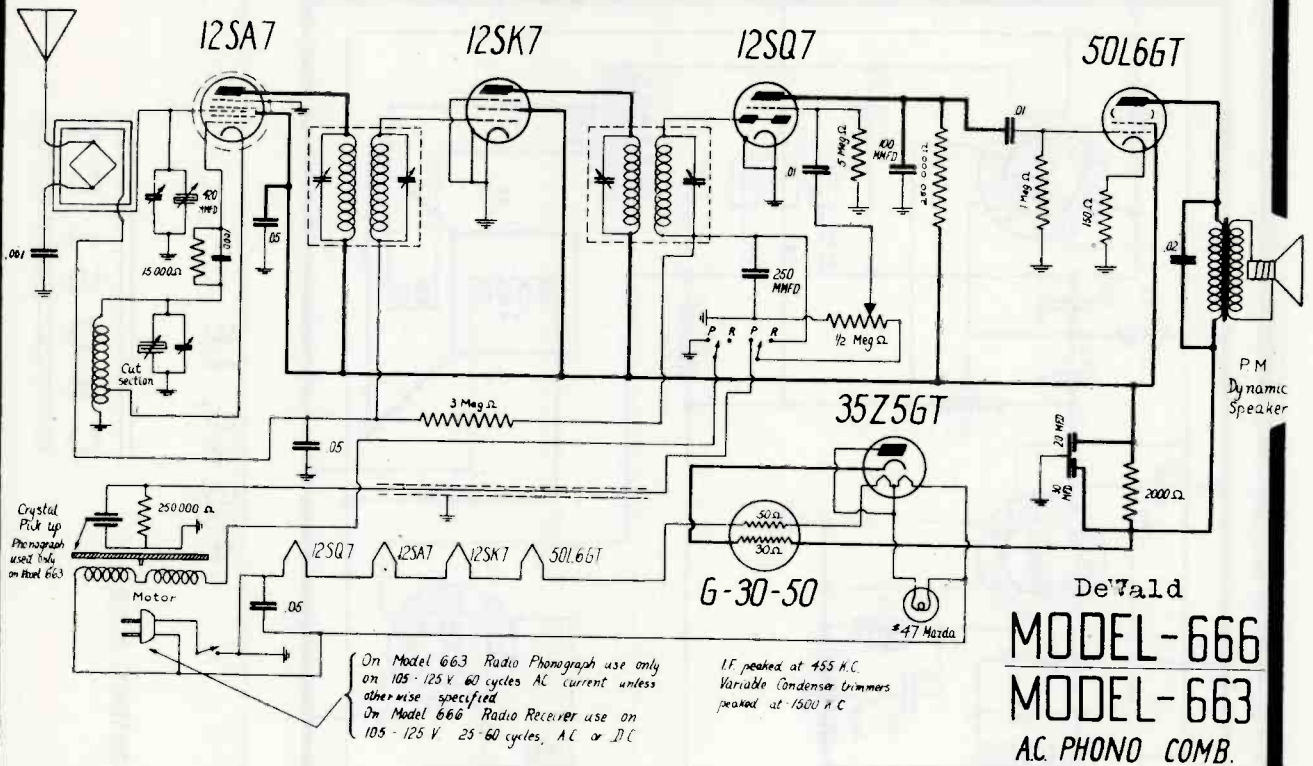 12SA7
12SK7
12SQ7
50L6GT
.001
420
MMFD
15000Ω
.0001
.05
Cut
section
.01
5 Meg Ω
100
MMFD
250 000 Ω
250
MMFD
P R P R
1/2 Meg Ω
.01
1 Meg Ω
150 Ω
.02
P.M
Dynamic
Speaker
3 Meg Ω
.05
35Z5GT
20 MFD
30
MFD
2000 Ω
Crystal
Pick up
Phonograph
used only
on Model 663
250000 Ω
Motor
12SQ7
12SA7
12SK7
50L6GT
.05
50Ω
30Ω
G-30-50
#47 Mazda
On Model 663 Radio Phonograph use only
on 105-125 V. 60 cycles AC current unless
otherwise specified
On Model 666 Radio Receiver use on
105-125 V 25-60 cycles, AC or DC
I.F. peaked at 455 K.C.
Variable Condenser trimmers
peaked at 1500 K C
DeWald
MODEL-666
MODEL-663
A.C. PHONO COMB.